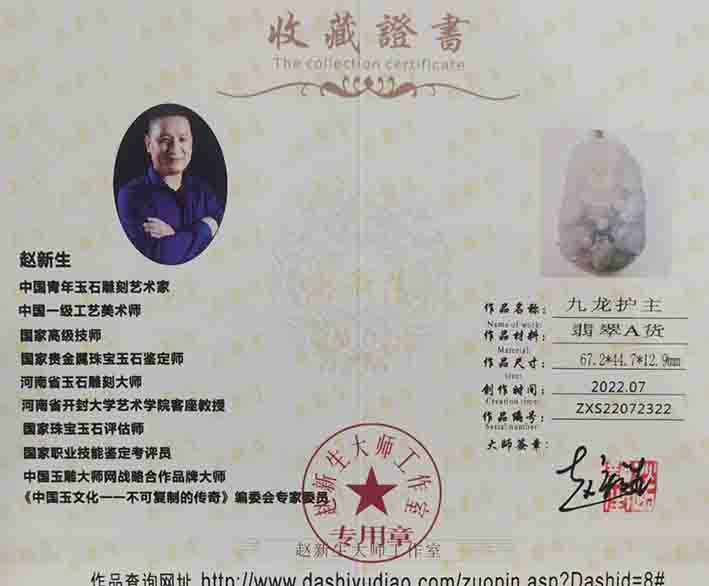 收藏證書
The collection certificate
赵新生
中国青年玉石雕刻艺术家
中国一级工艺美术师
国家高级技师
国家贵金属珠宝玉石鉴定师
河南省玉石雕刻大师
河南省开封大学艺术学院客座教授
国家珠宝玉石评估师
国家职业技能鉴定考评员
中国玉雕大师网战略合作品牌大师
《中国玉文化一一不可复制的传奇》编委会专家委员
作品名称: 九龙护主
Name of work:
作品材料: 翡翠A货
Material:
作品尺寸: 67.2*44.7*12.9mm
size:
创作时间: 2022.07
Creation time:
作品编号: ZXS22072322
Serial number:
大师签章:
赵新生
赵新生大师工作室
专用章
赵新生大师工作室
作品查询网址 http://www.dashiyudiao.com/zuopin.asp?Dashid=8#